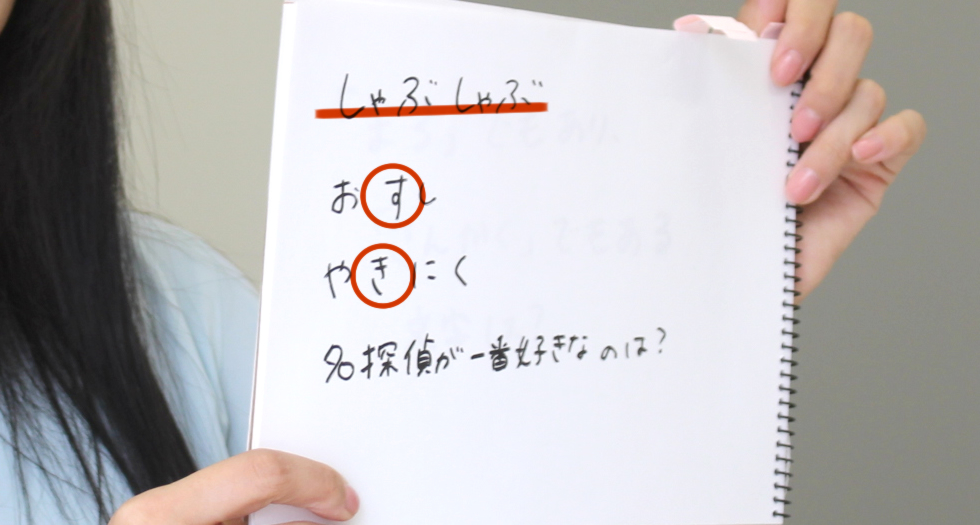 しゃぶしゃぶ
おすし
やきにく
名探偵が一番好きなのは?